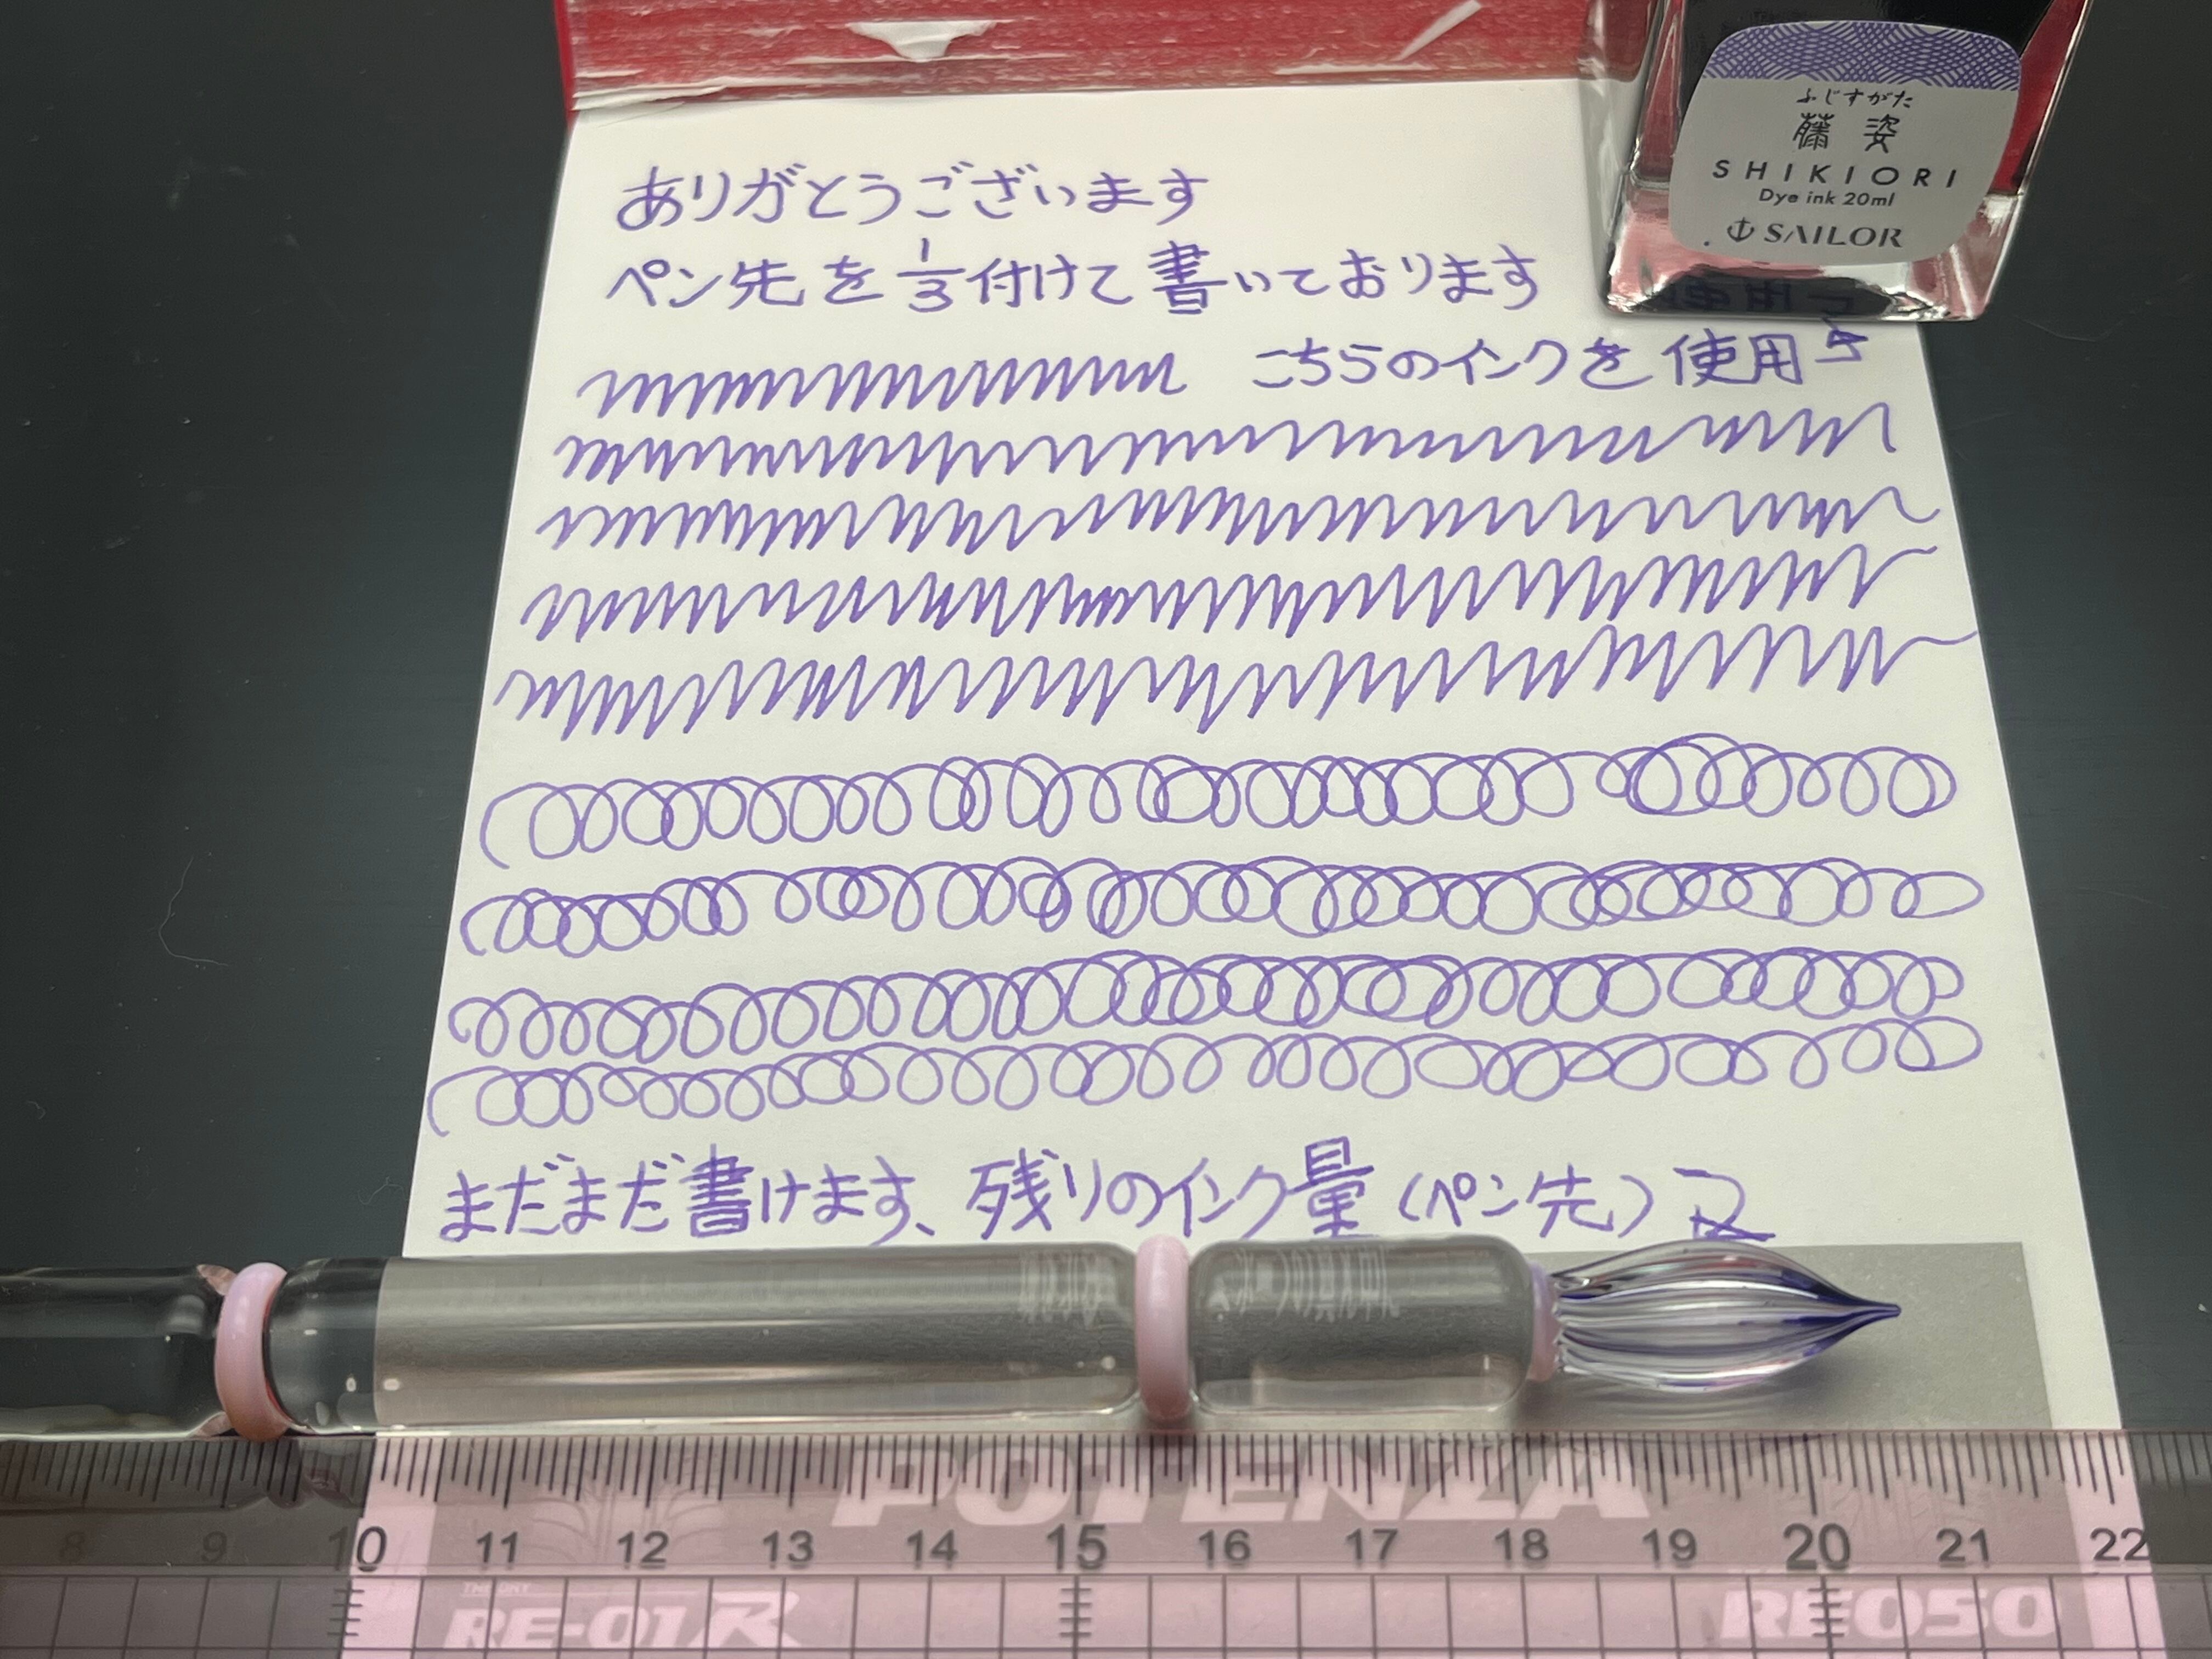 ふじすがた
藤姿
SHIKIORI
Dye ink 20ml
SAILOR
ありがとうございます
ペン先を1/3付けて書いております
こちらのインクを使用
まだまだ書けます、残りのインク量(ペン先)
POTENZA
8 9 10 11 12 13 14 15 16 17 18 19 20 21 22
RE-01R
RE050